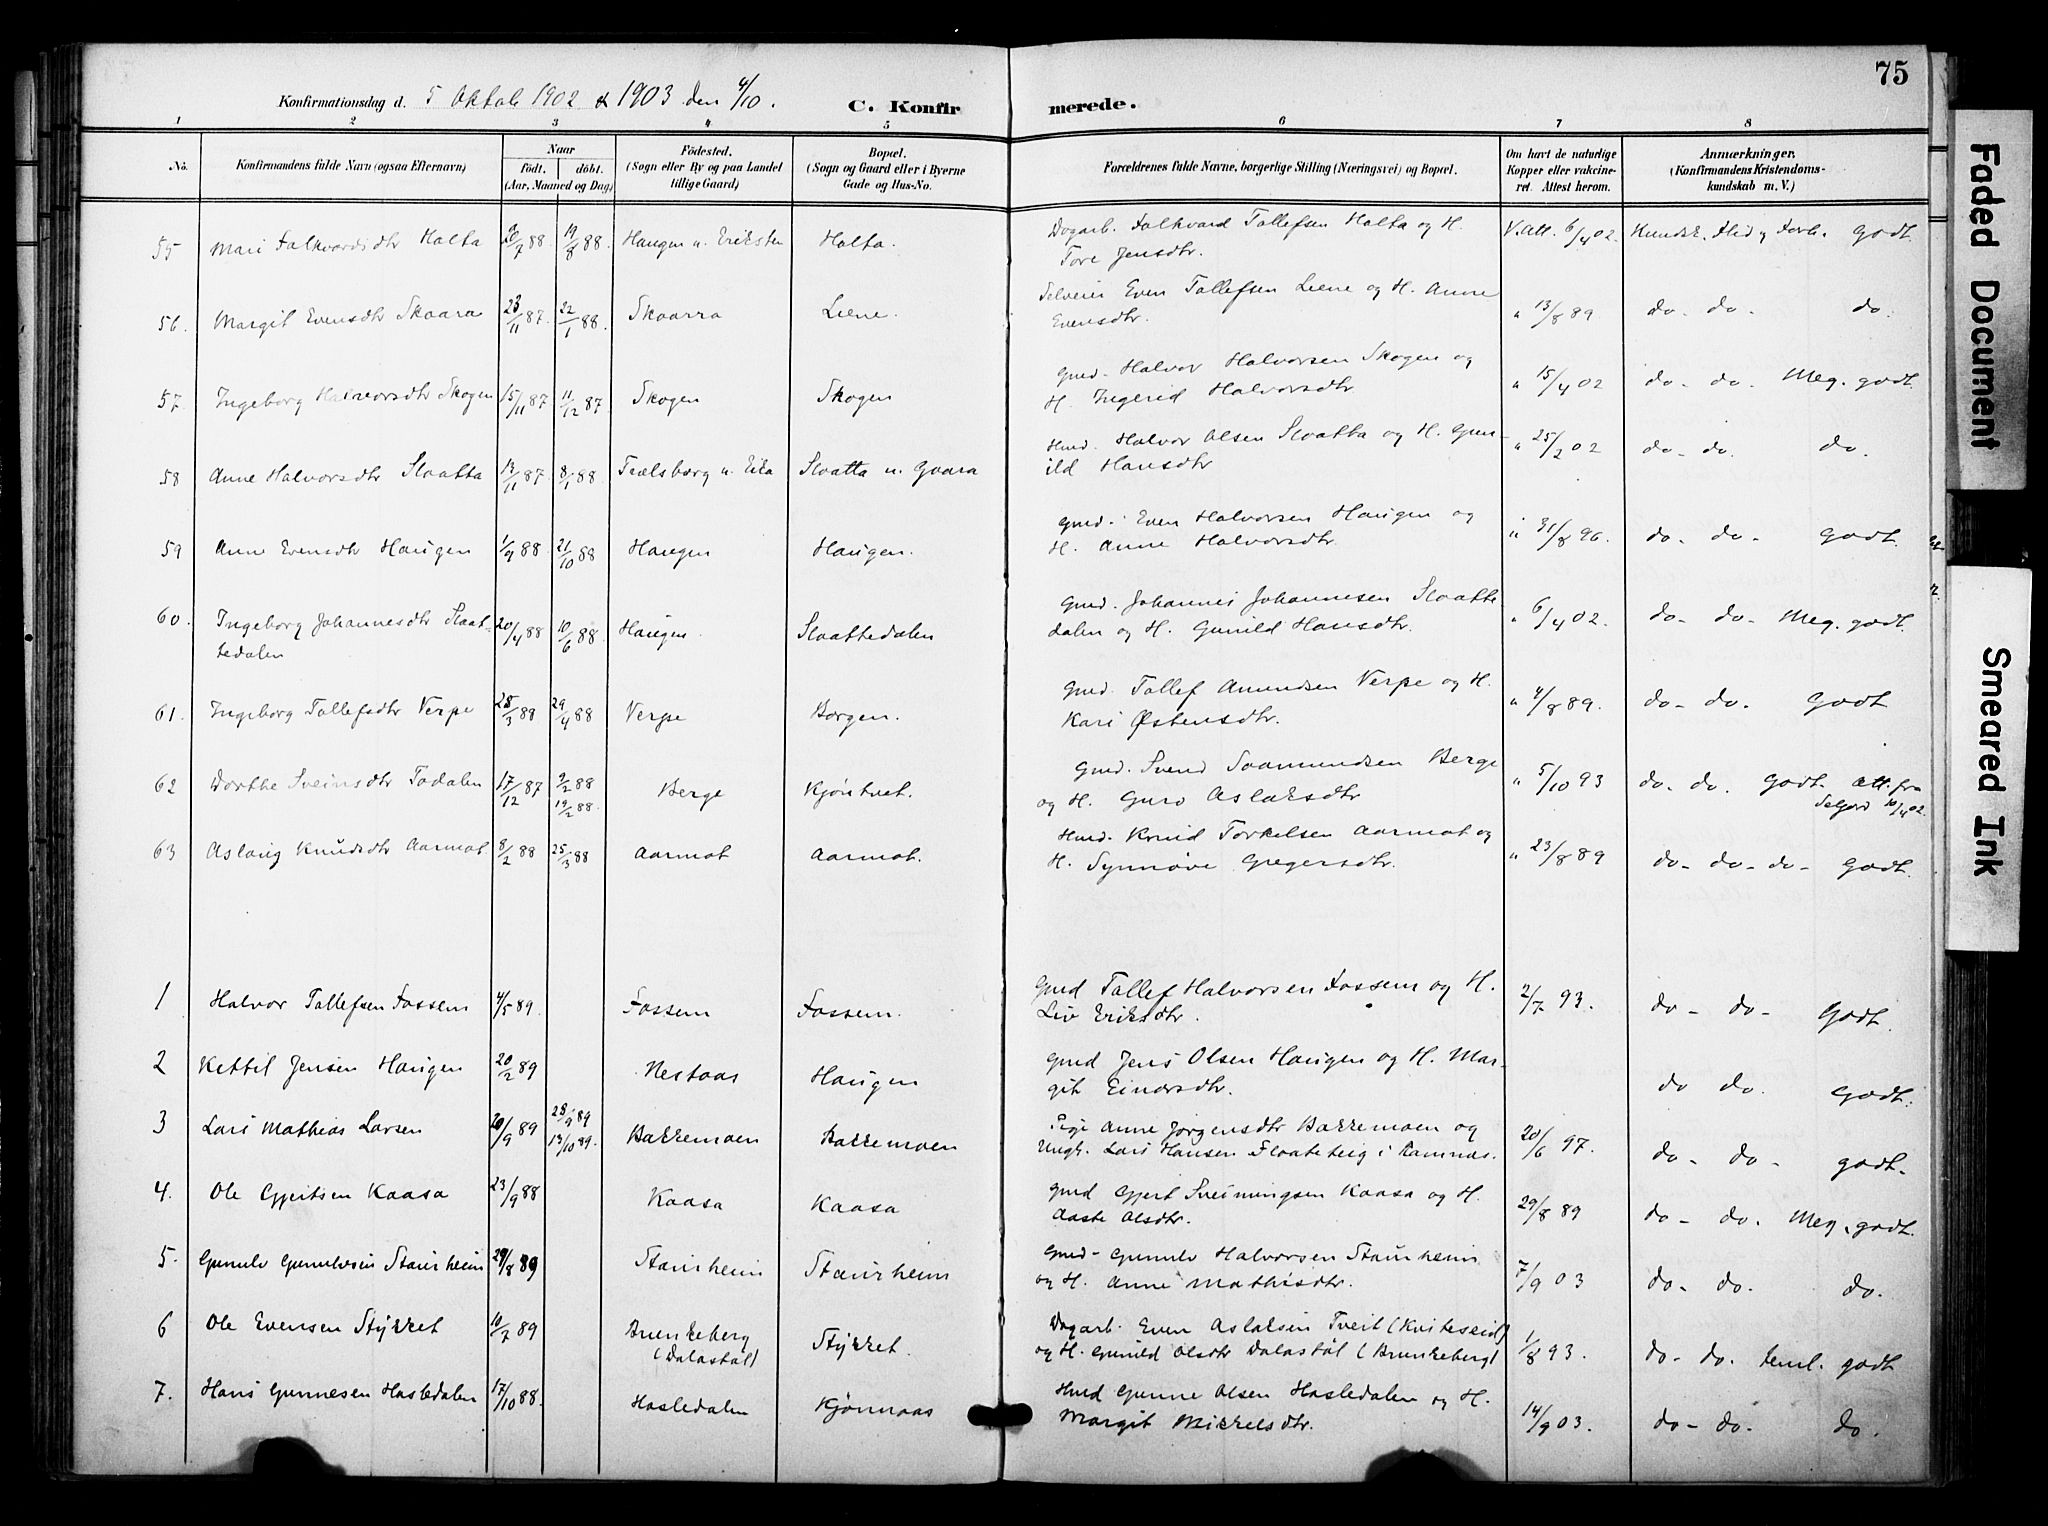 75
Konfirmationsdag d. 5 Oktob 1902 & 1903 den 4/10. C. Konfirmerede.
1 2 3 4 5 6 7 8
No. Konfirmandens fulde Navn (ogsaa Efternavn) Naar født. døbt. (Aar, Maaned og Dag) Fødested. (Sogn eller By og paa Landet tillige Gaard) Bopæl. (Sogn og Gaard eller i Byerne Gade og Hus-No. Forældrenes fulde Navne, borgerlige Stilling (Næringsvei) og Bopæl. Om havt de naturlige Kopper eller vakcineret. Attest herom. Anmærkninger. (Konfirmandens Kristendomskundskab m. V.)
55 Mari Falkvardsdtr Halta 20/7 88 19/8 88 Haugen u. Eriksten Halta. Dagarb. Falkvard Tallefsen Halta og H. Tore Jensdtr. V. Att. 6/4 02. Kundsk. Flid og Forh. Godt.
56. Margit Evensdtr Skaara 23/11 87. 22/1 88. Skaarra Liene. Selveier Even Tallefsen Liene og H. Anne Evensdtr. " 13/8 89 do- do- do.
57. Ingeborg Halvorsdtr Skogen 15/11 87 11/12 87 Skogen Skogen Gmd- Halvor Halvorsen Skogen og H. Ingerid Halvorsdtr. " 15/4 02 do- do. Meg. godt.
58 Anne Halvorsdtr Slaatta 13/11 87 8/1 88 Trælsbærg u. Eika Slaatta u. Gvara Hmd. Halvor Olsen Slaatta og H. Gunild Hansdtr " 25/2 02 do- do. do.
59 Anne Evensdtr Haugen 1/9 88 21/10 88 Haugen Haugen. Gmd. Even Halvorsen Haugen og H. Anne Halvorsdtr. " 31/8 96. do- do- Godt.
60. Ingeborg Johannesdtr Slaattedalen 20/4 88 10/6 88 Haugen Slaattedalen Gmd. Johannes Johannesen Slaattedalen og H. Gunild Hansdtr. " 6/4 02. do- do- Meg. godt.
61. Ingeborg Tallefsdtr Verpe 25/3 88 29/4 88 Verpe Borgen. Gmd. Tallef Amundsen Verpe og H. Kari Østensdtr. " 4/8 89. do- do. Godt
62 Dorthe Sveinsdtr Tadalen 17/12 87 9/2 88 19/2 88. Berge Kjøntvet. Gmd. Svend Saamundsen Berge og H. Guro Aslaksdtr " 5/10 93 do- do. Godt. Att. fra Seljord 10/4 02.
63 Aslaug Knudsdtr Aarmot 8/2 88 25/3 88 Aarmot Aarmot. Hmd. Knud Torkelsen Aarmot og H. Synnøve Gregersdtr. " 23/8 89 do- do- do- Godt.
1 Halvor Tallefsen Fossem 4/5 89. Fossem Fossem. Gmd Tallef Halvorsen Fossem og H. Liv Eriksdtr. 2/7 93. do- do- Godt.
2 Kettil Jensen Haugen 20/2 89 Nestaas Haugen Gmd Jens Olsen Haugen og H. Margit Einarsdtr. do do. Godt.
3 Lars Mathias Larsen 20/9 89 28/9 89 13/10 89. Bakkemoen Bakkemoen Pige Anne Jørgensdtr Bakkemoen og Ungk. Lars Hansen Flaateteig i Ramnæs. 20/6 97. do- do- godt.
4. Ole Gjertsen Kaasa 23/9 88 Kaasa Kaasa Gmd Gjert Sveinungsen Kaasa og H. Aaste Olsdtr. 29/8 89 do- do. Meg. godt.
5. Gunulv Gunulvsen Staurheim 29/8 89 Staurheim Staurheim Gmd- Gunulv Halvorsen Staurheim og H. Anne Mathisdtr. 7/9 03 do- do. do.
6 Ole Evensen Stykket 10/7 89 Brunkeberg (Dalastøl) Stykket. Dagarb. Even Aslaksen Tveit (Kviteseid) og H. Gunild Olsdtr Dalastøl (Brunkeberg) 1/8 93. do- do. temml. godt
7. Hans Gunnesen Hasledalen 17/10 88. Hasledalen Kjønnaas Hmd Gunne Olsen Hasledalen og H. Margit Mikkelsdtr. 14/9 03. do- do- do.
Faded Document
Smeared Ink